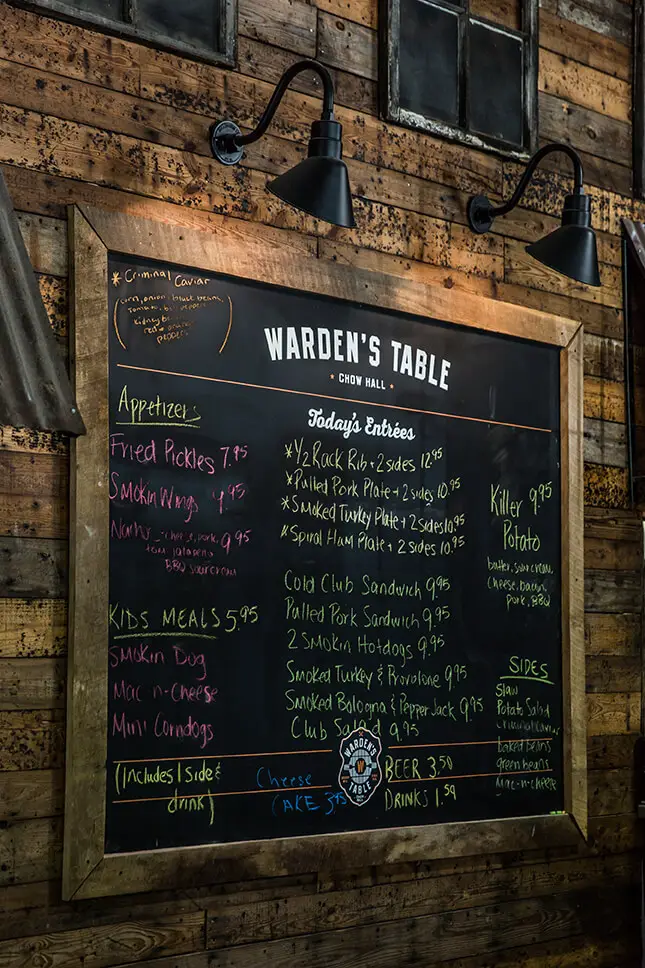 * Criminal Caviar
corn, onion, black beans,
Tomato, bell pepper
Kidney
red & orange
peppers
WARDEN'S TABLE
* CHOW HALL *
Appetizers
Fried Pickles 7.95
Smokin Wings 9.95
Nachos - cheese, pork, 9.95
tom jalapeño
BBQ sour cream
KIDS MEALS 5.95
Smokin Dog
Mac-n-Cheese
Mini Corndogs
(Includes 1 side &
drink)
Today's Entrées
*1/2 Rack Rib + 2 sides 12.95
*Pulled Pork Plate + 2 sides 10.95
*Smoked Turkey Plate + 2 sides 10.95
*Spiral Ham Plate + 2 sides 10.95
Cold Club Sandwich 9.95
Pulled Pork Sandwich 9.95
2 Smokin Hotdogs 9.95
Smoked Turkey & Provolone 9.95
Smoked Bologna & Pepper Jack 9.95
Club Salad 9.95
Cheese
CAKE 3.95
WARDEN'S
W
TABLE
BEER 3.50
DRINKS 1.59
Killer 9.95
Potato
butter, sour cream,
cheese, bacon,
pork, BBQ
SIDES
Slaw
Potato Salad
criminal caviar
baked beans
green beans
Mac-n-cheese